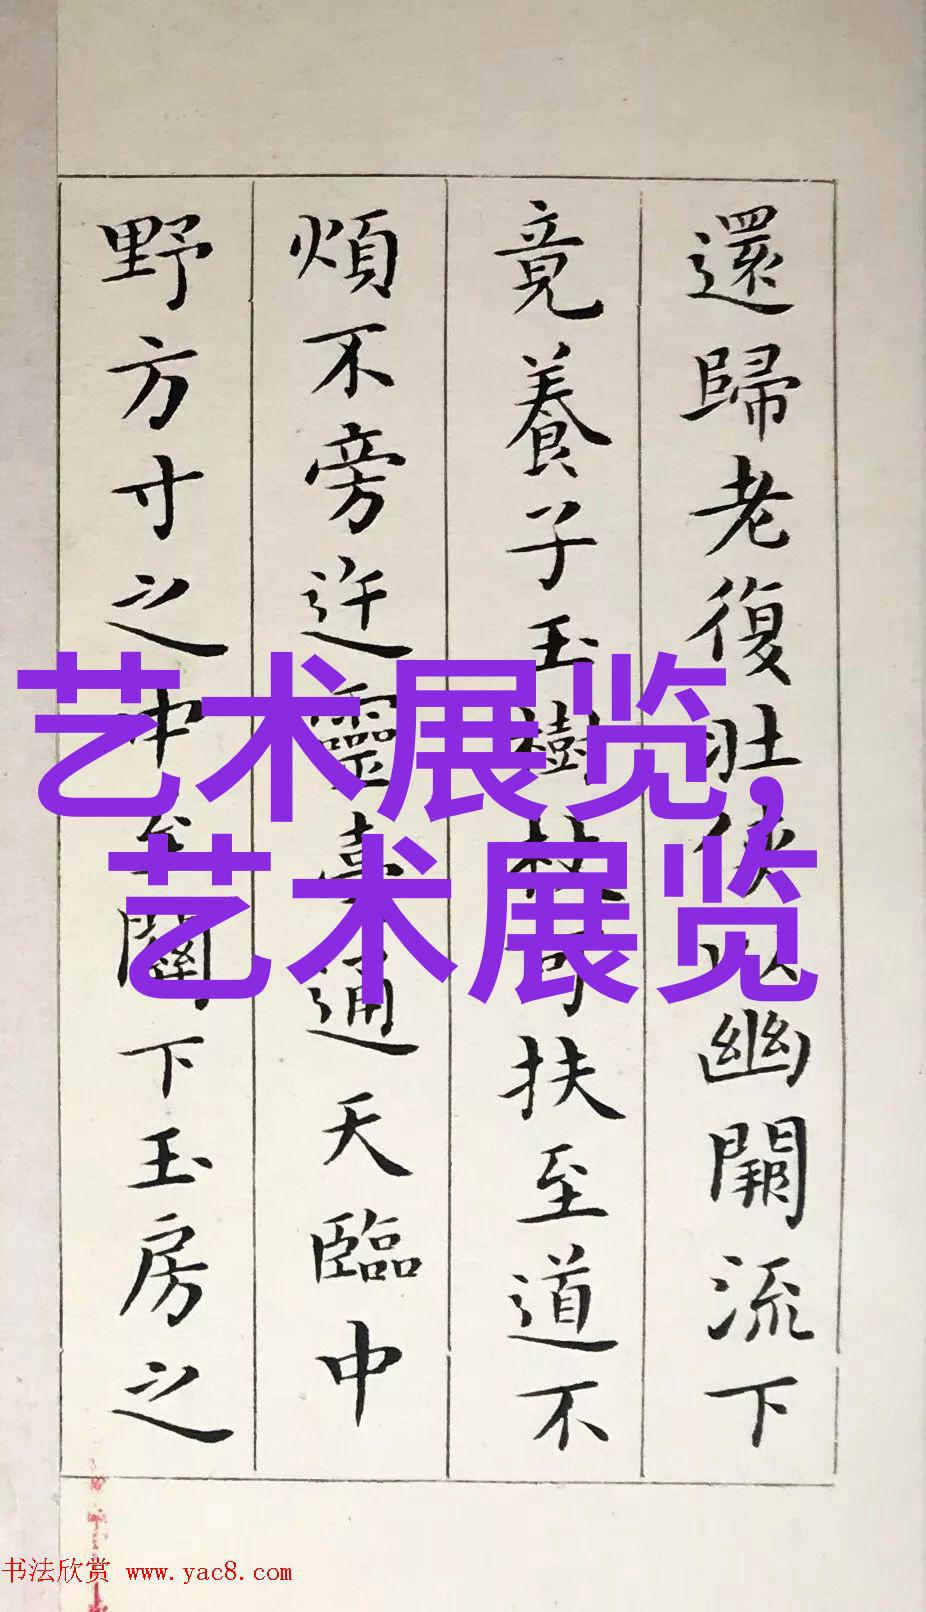 還歸老復壯俠以幽闕流下
竟養子玉樹杖可扶至道不
煩不旁迕靈臺通天臨中
野方寸之中至關下玉房之
艺术展览,
艺术展览
书法欣赏 www.yac8.com